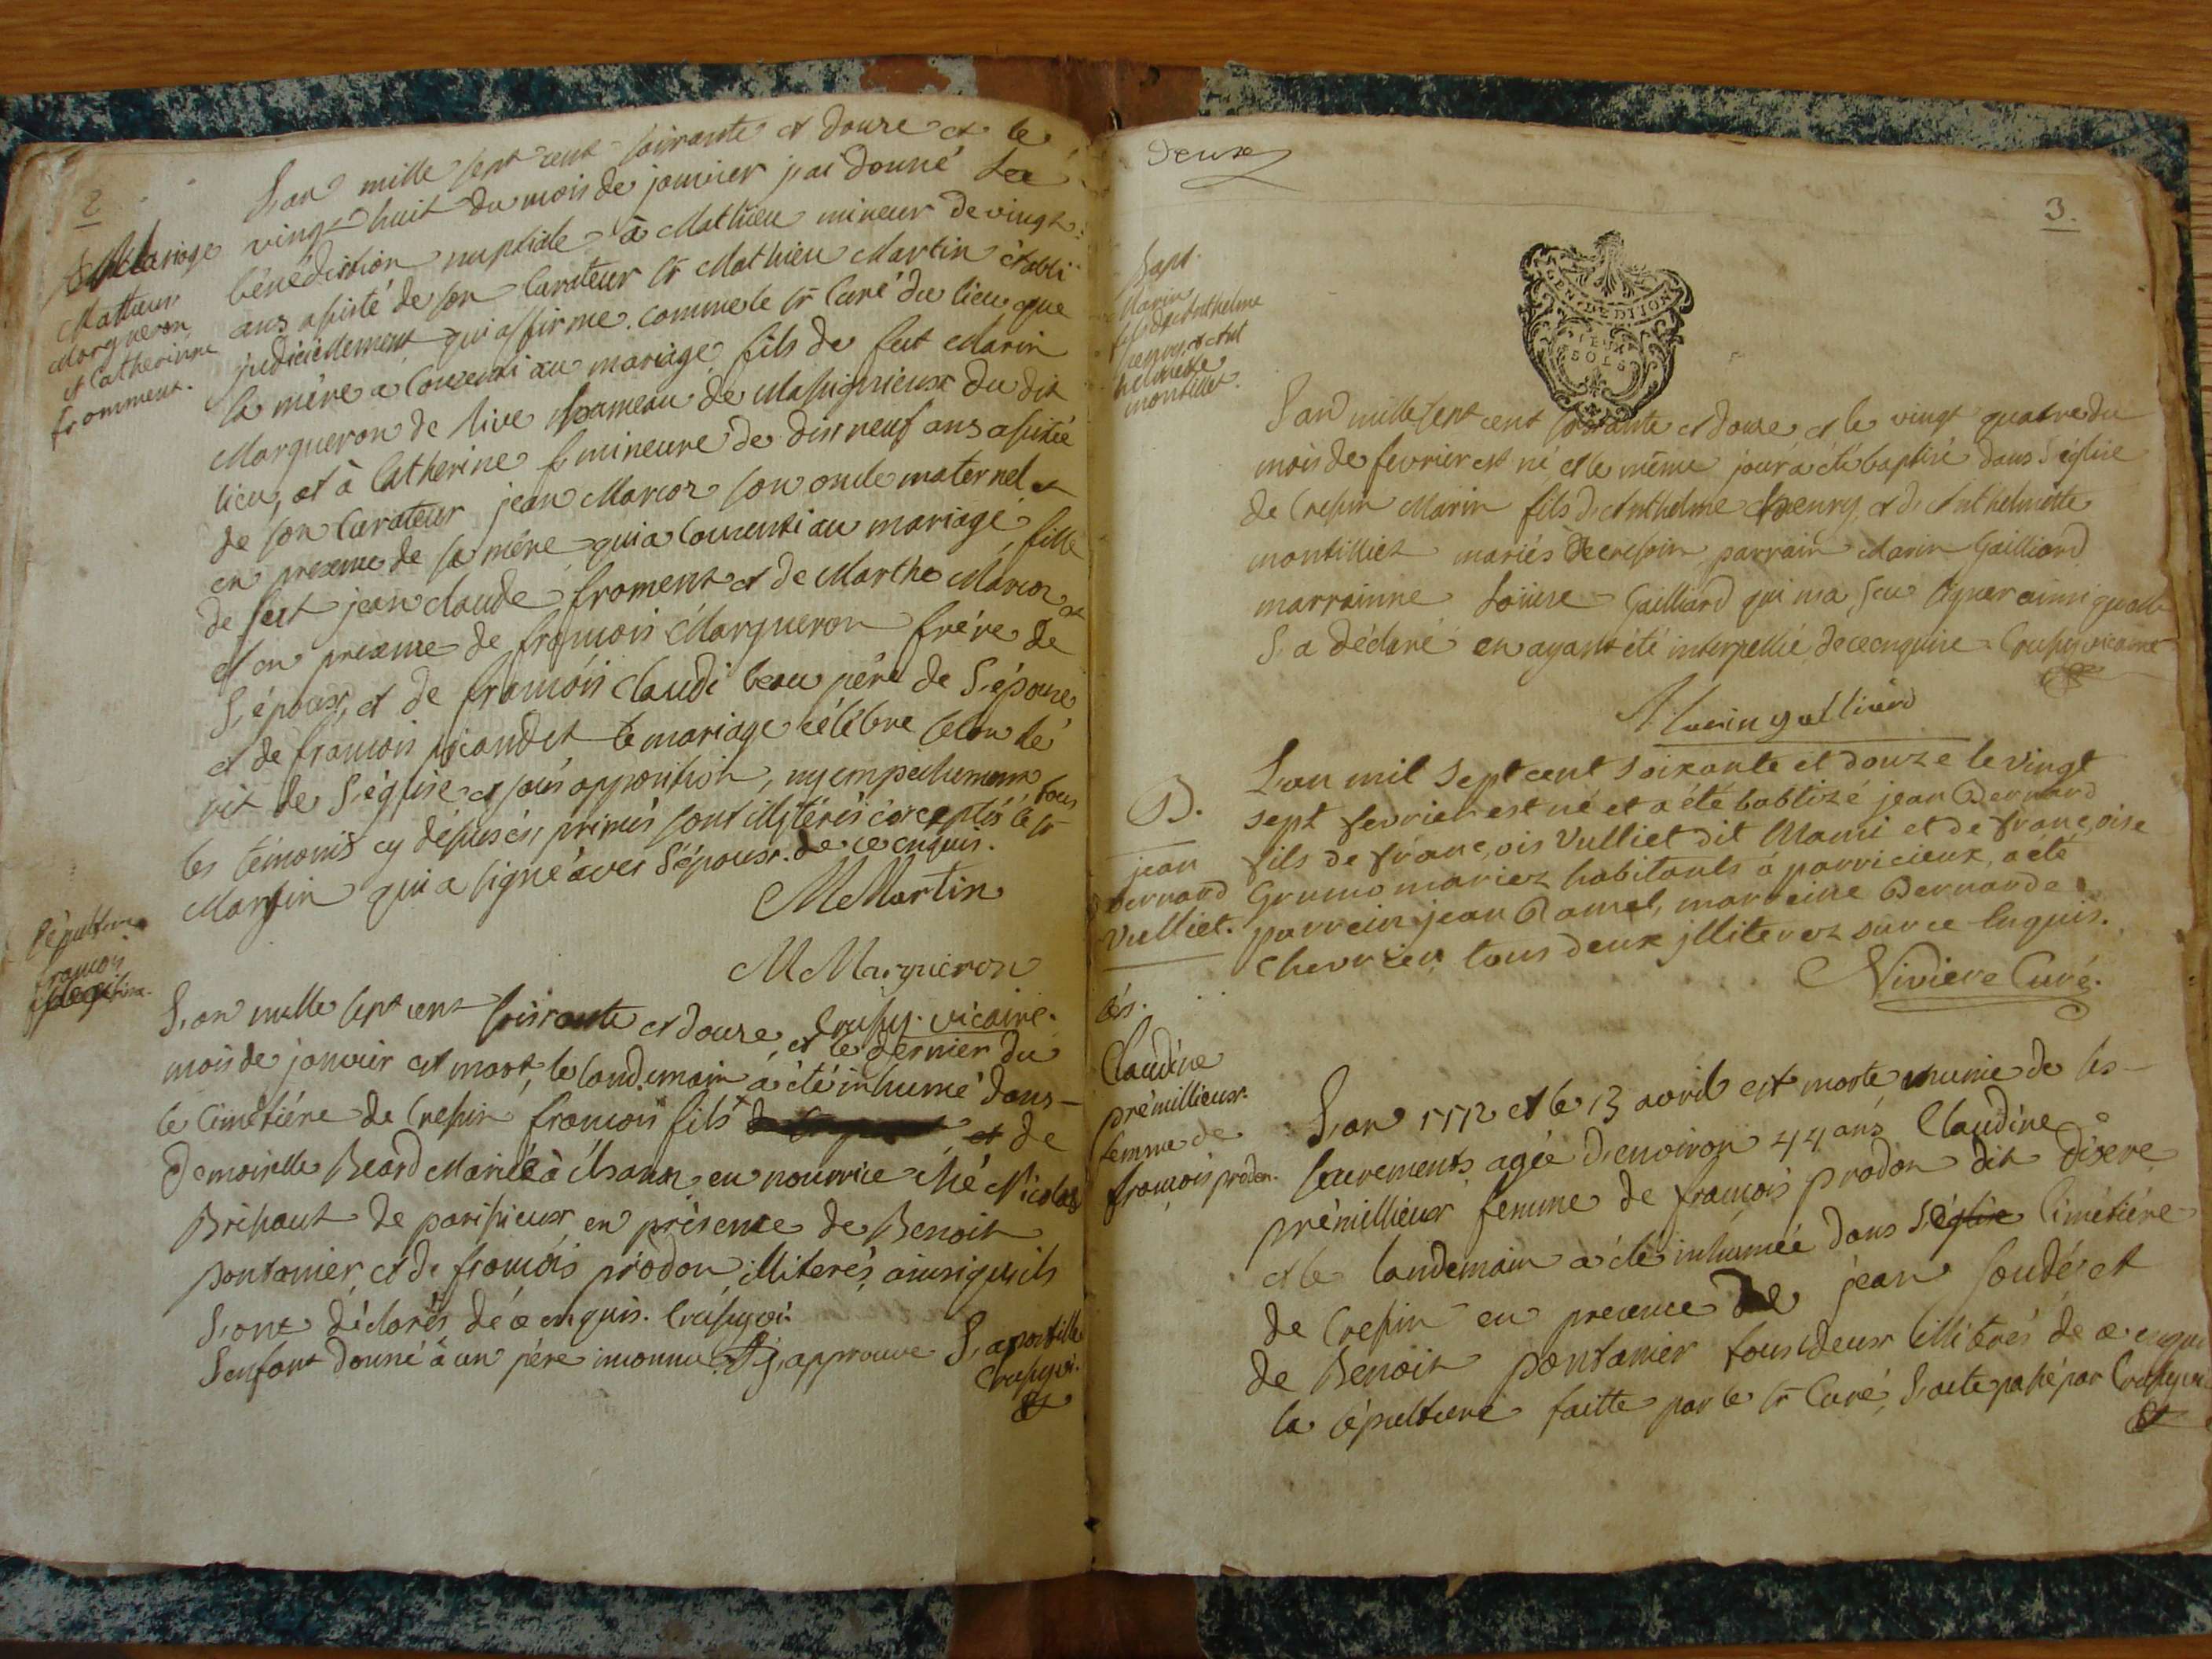 2
L'an mille sept cent soixante et douze et le
vingt huit du mois de janvier j'ai donné La
bénédiction nuptiale à Mathieu mineur de vingt
ans assisté de son Curateur sr Mathieu Martin établi
judiciellement qui affirme comme le sr Curé du lieu que
la mère a consenti au mariage, fils de feut Marin
Margueron de hameau de Massignieux du dit
lieu, et à Catherine mineure de dix neuf ans assistée
de son Curateur jean Marcoz son oncle maternel et
en presence de sa mère qui a consenti au mariage, fille
de feut jean claude froment et de Marthe Marcoz
et en presence de françois Margueron frère de
L'époux, et de françois Claudi beau père de L'épouse
et de françois le mariage célébré selon le
rit de L'église et sans opposition, ny empechement
les témoins cy dessus exprimés sont illitérés exceptés le sr tous
Martin qui a signé avec L'époux. de ce enquis.
Mariage
Mathieu
Margueron
et Catherinne
fromment.
MMartin
MMargueron
Crussy vicaire.
Sépulture
françois
L'an mille sept cent soixante et douze, et le dernier du
mois de janvier est mort, le landemain a été inhumé dans
le Cimetière de Cressin françois fils et de
Demoiselle Beard Mariée à en nourrice ché Nicolas
Brissaut de parissieux en présence de Benoit
pontanier et de françois prodon illiterés ainsi qu'ils
L'ont déclarés de ce enquis. Crussy vi.
L'enfant donné à un père inconnu. j'approuve L'apostille
Crussy vi.
Deux
3.
GEN. DE DIJON
DEUX
SOLS
Bapt.
Marin
fils d'Anthelme
henry et Ant
helmette
montillet.
L'an mille sept cent soixante et douze et le vingt quatre du
mois de fevrier est né, et le même jour a été baptisé dans L'église
de Cressin Marin fils d'Anthelme henry, et d'Anthelmette
montilliet mariés de cressin, parrain Marin Gailliard
marrainne Loüise Gailliard qui n'a sçu signer ainsi qu'elle
L'a déclaré en ayant été interpellée de ce enquise Crussy vicaire
Marin galliard
B.
jean
Bernard
Vulliet.
L'an mil sept cent soixante et douze le vingt
sept fevrier est né et a été babtizé jean Bernard
fils de françois Vulliet dit Mami et de françoise
Grumo mariez habitants à parricieux, a été
parrein jean Ramel, marreine Bernarde
Chevrier, tous deux jlliterez sur ce Enquis.
Vivier Curé.
sés.
Claudine
prémillieux
femme de
françois prodon.
L'an 1772 et le 13 avril est morte, munie de ses
sacrements, agée d'environ 44 ans, Claudine
prémillieux femme de françois prodon dit disere
et le landemain a été inhumée dans L'église Cimétiére
de Cressin en presence de jean soudé et
de Benoit pontanier tous deux illitérés de ce enquis
la sépulture faitte par le sr Curé, L'acte passé par Crussy vi